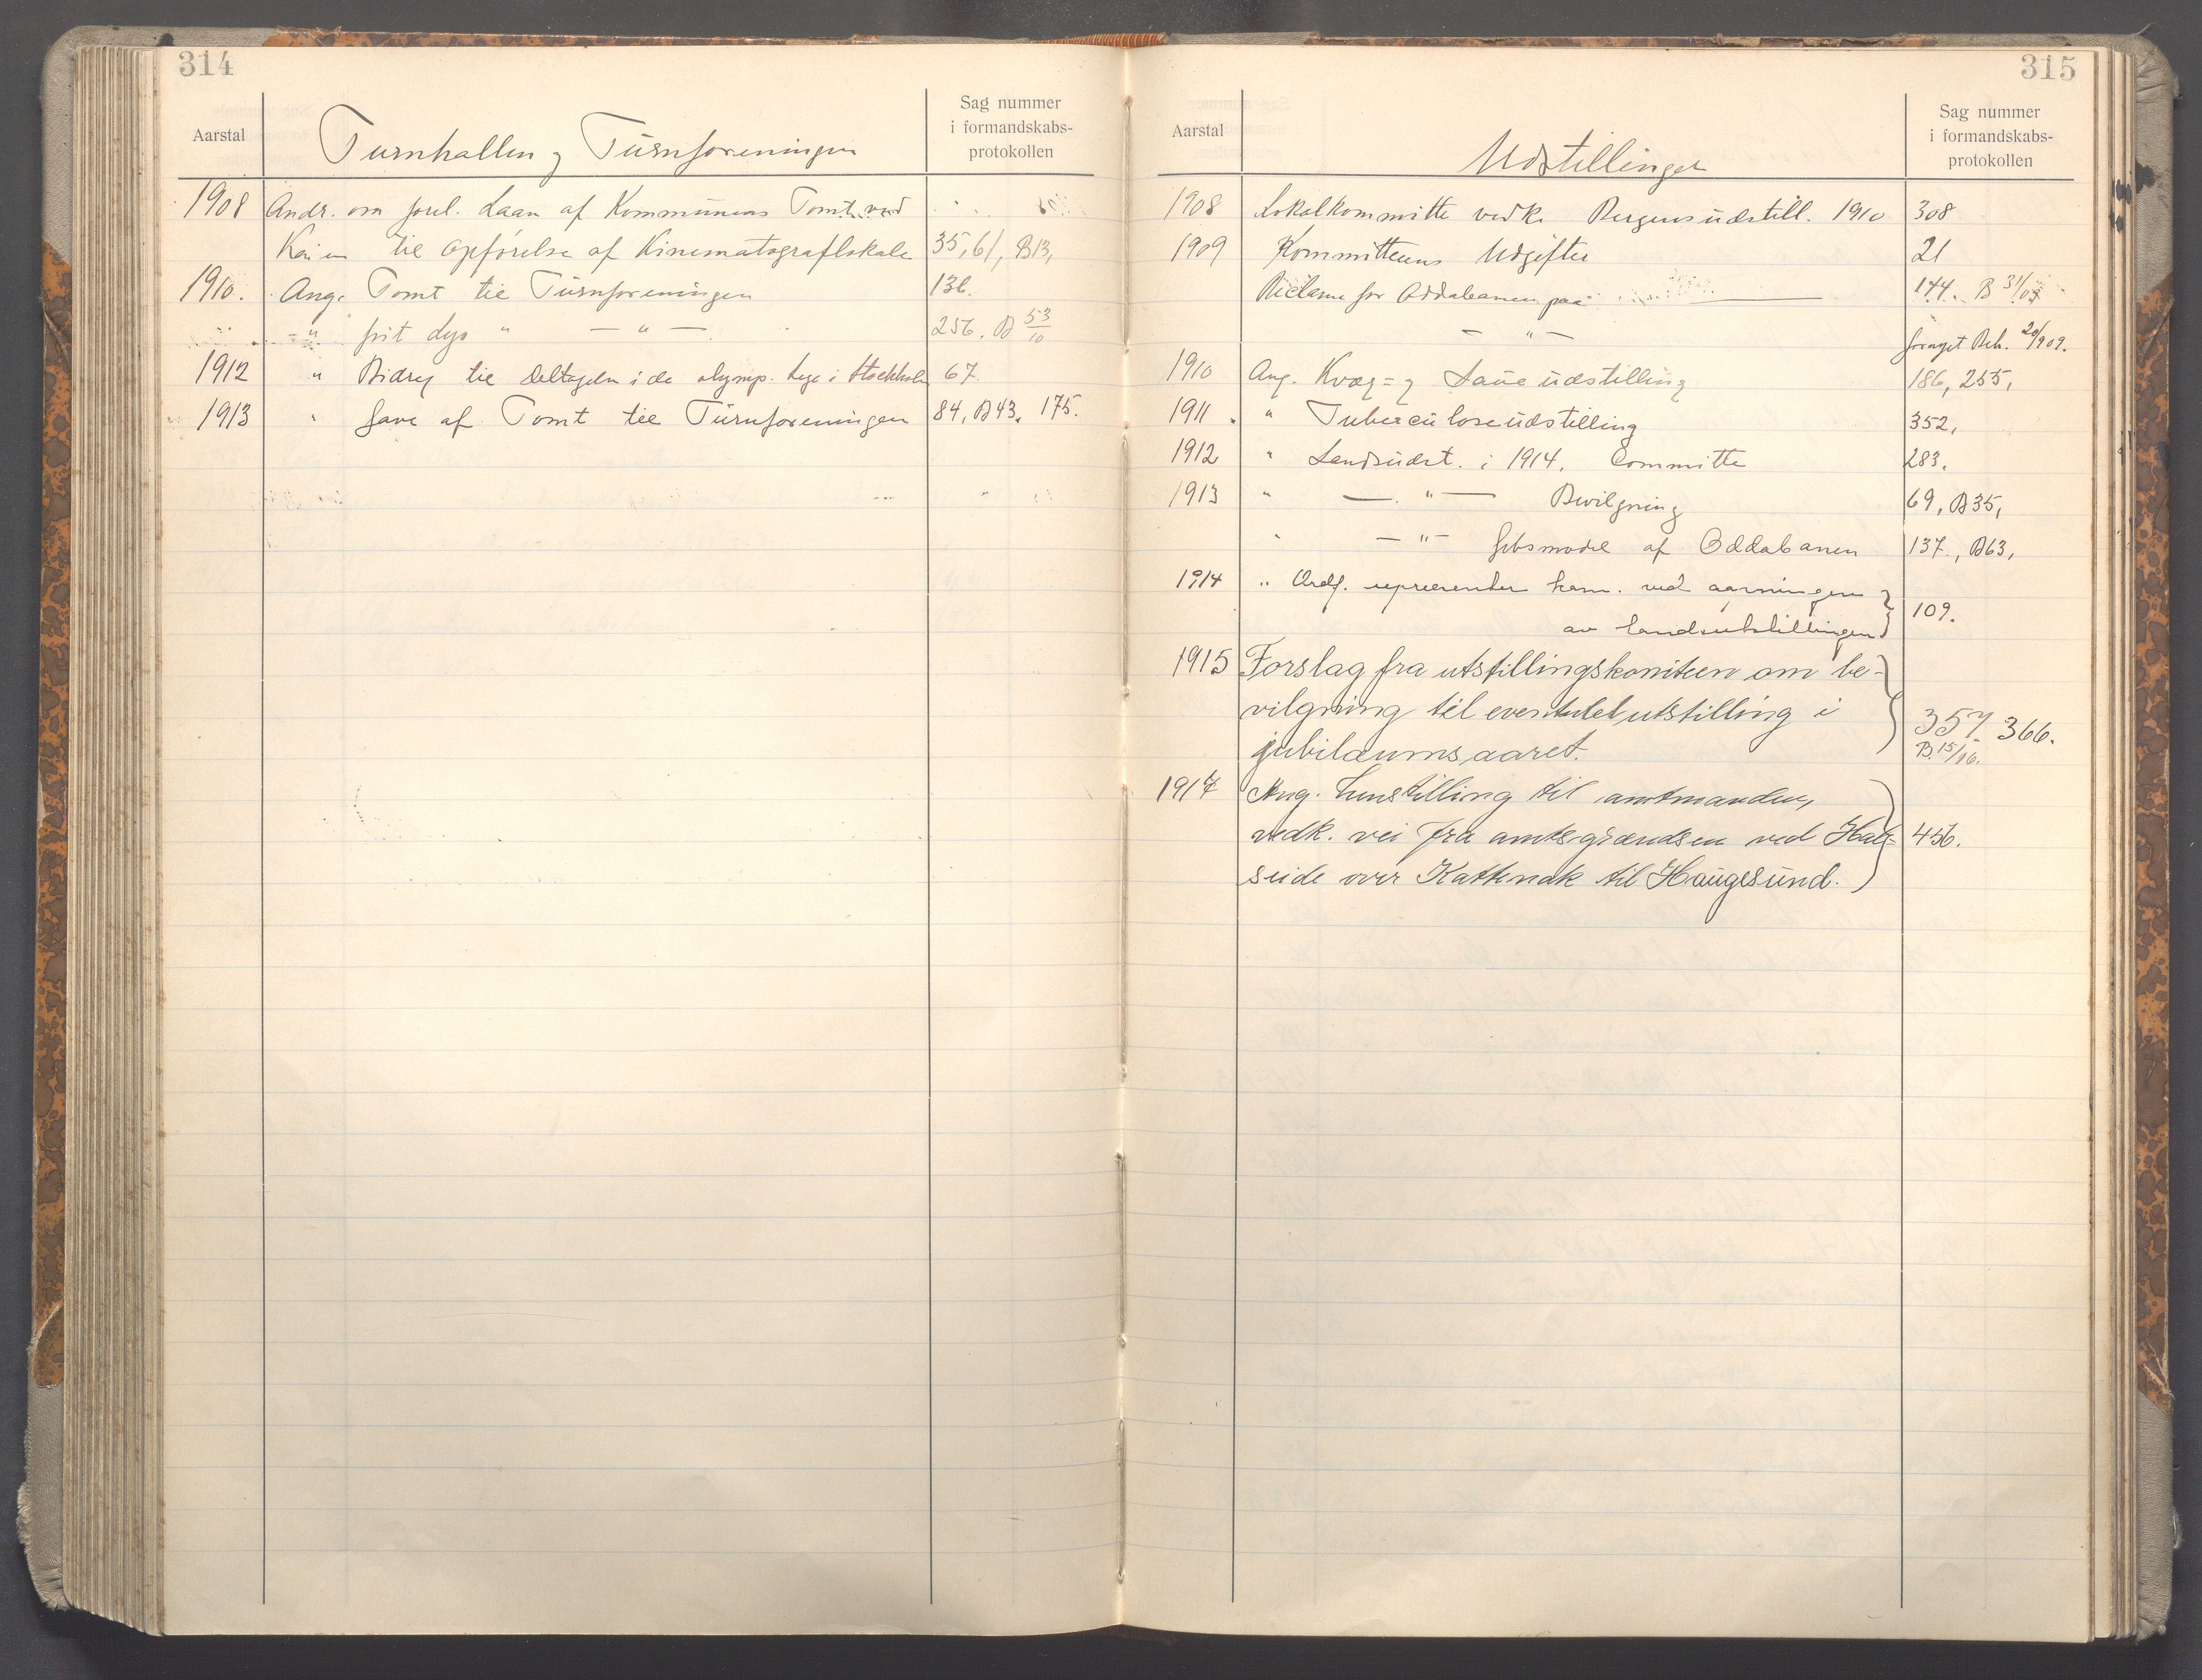 314
Aarstal
Turnhallen og Turnforeningen
Sag nummer
i formandskabs-
protokollen
1908 Andr. om forel. Laan af Kommunens Tomt ved
Kaien til Opførelse af Kinematograflokale 35, 61, B13,
1910. Ang. Tomt til Turnforeningen 136.
" frit Lys " — " — 256. B 53/10
1912 " Bidrag til Deltagelse i de olymp. Lege i Stockholm 67.
1913 " Gave af Tomt til Turnforeningen 84, B43, 175.
315
Aarstal
Udstillinger
Sag nummer
i formandskabs-
protokollen
1908 Lokalkommitte vedk. Bergensudstill. 1910 308
1909 Kommitteens Udgifter 21
Reclame for Oddabanen paa — 144. B 31/09
— " — Beh. 20/909.
1910 Ang. Kvæg= og Saueudstilling 186, 255,
1911 " Tuberculoseudstilling 352,
1912 " Landsudst. i 1914. Committe 283.
1913 " — " — Bevilgning 69, B35,
" — " — Gibsmodel af Oddabanen 137., B63,
1914 " Ordf. repræsenter kom. ved aapningen
av landsutstillingen 109.
1915 Forslag fra utstillingskomiteen om be-
vilgning til eventuel utstilling i
jubilæumsaaret. 357. 366.
B.15/16.
1917 Ang. henstilling til amtmanden,
vedk. vei fra amtsgrændsen ved 456.
seide over Kattenak til Haugesund.